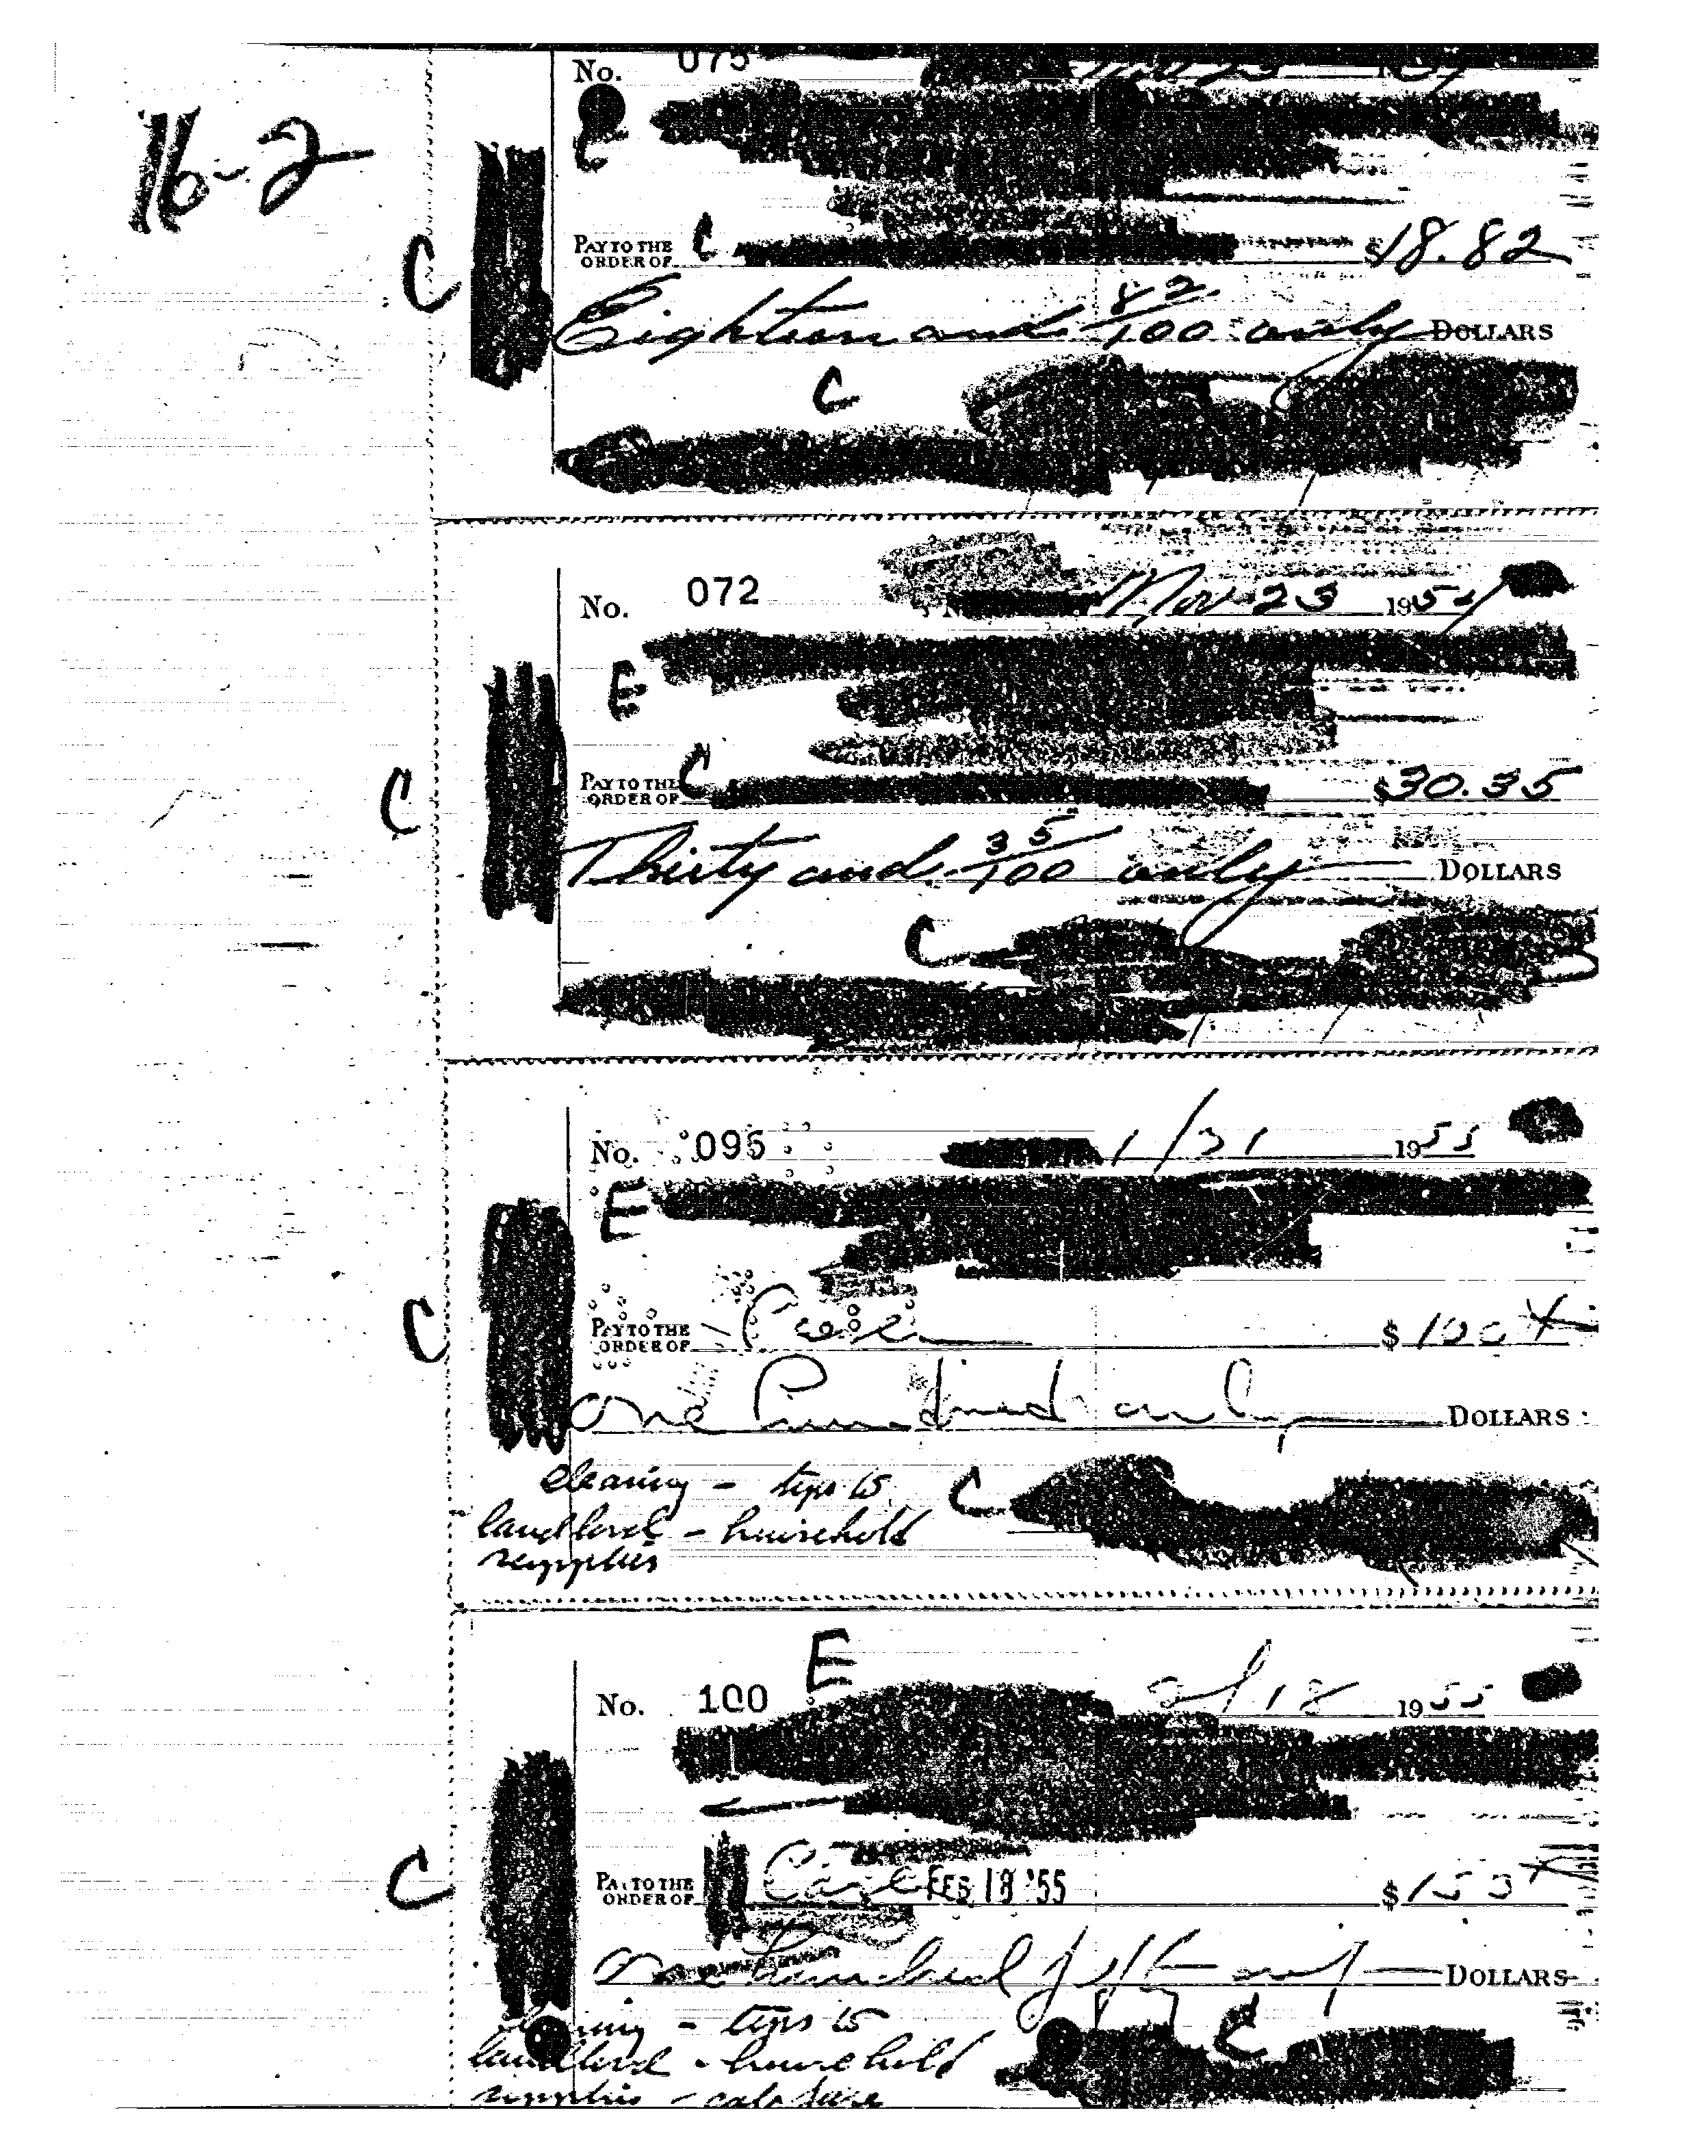 16-2
No. 075
C
PAY TO THE ORDER OF C $18.82
C
Eighteen and 82/100 only DOLLARS
C
No. 072 Nov 23 1954
E
PAY TO THE ORDER OF C $30.35
C
Thirty and 35/100 only DOLLARS
C
No. 095 1/31 1955
E
PAY TO THE ORDER OF $100
C
One Hundred only DOLLARS
cleaning - tips to C
landlord - household
supplies
E
No. 100 2/18 1955
PAY TO THE ORDER OF FEB 18 '55 $150
C
One hundred fifty only DOLLARS
- tips to C
landlord - household
supplies -